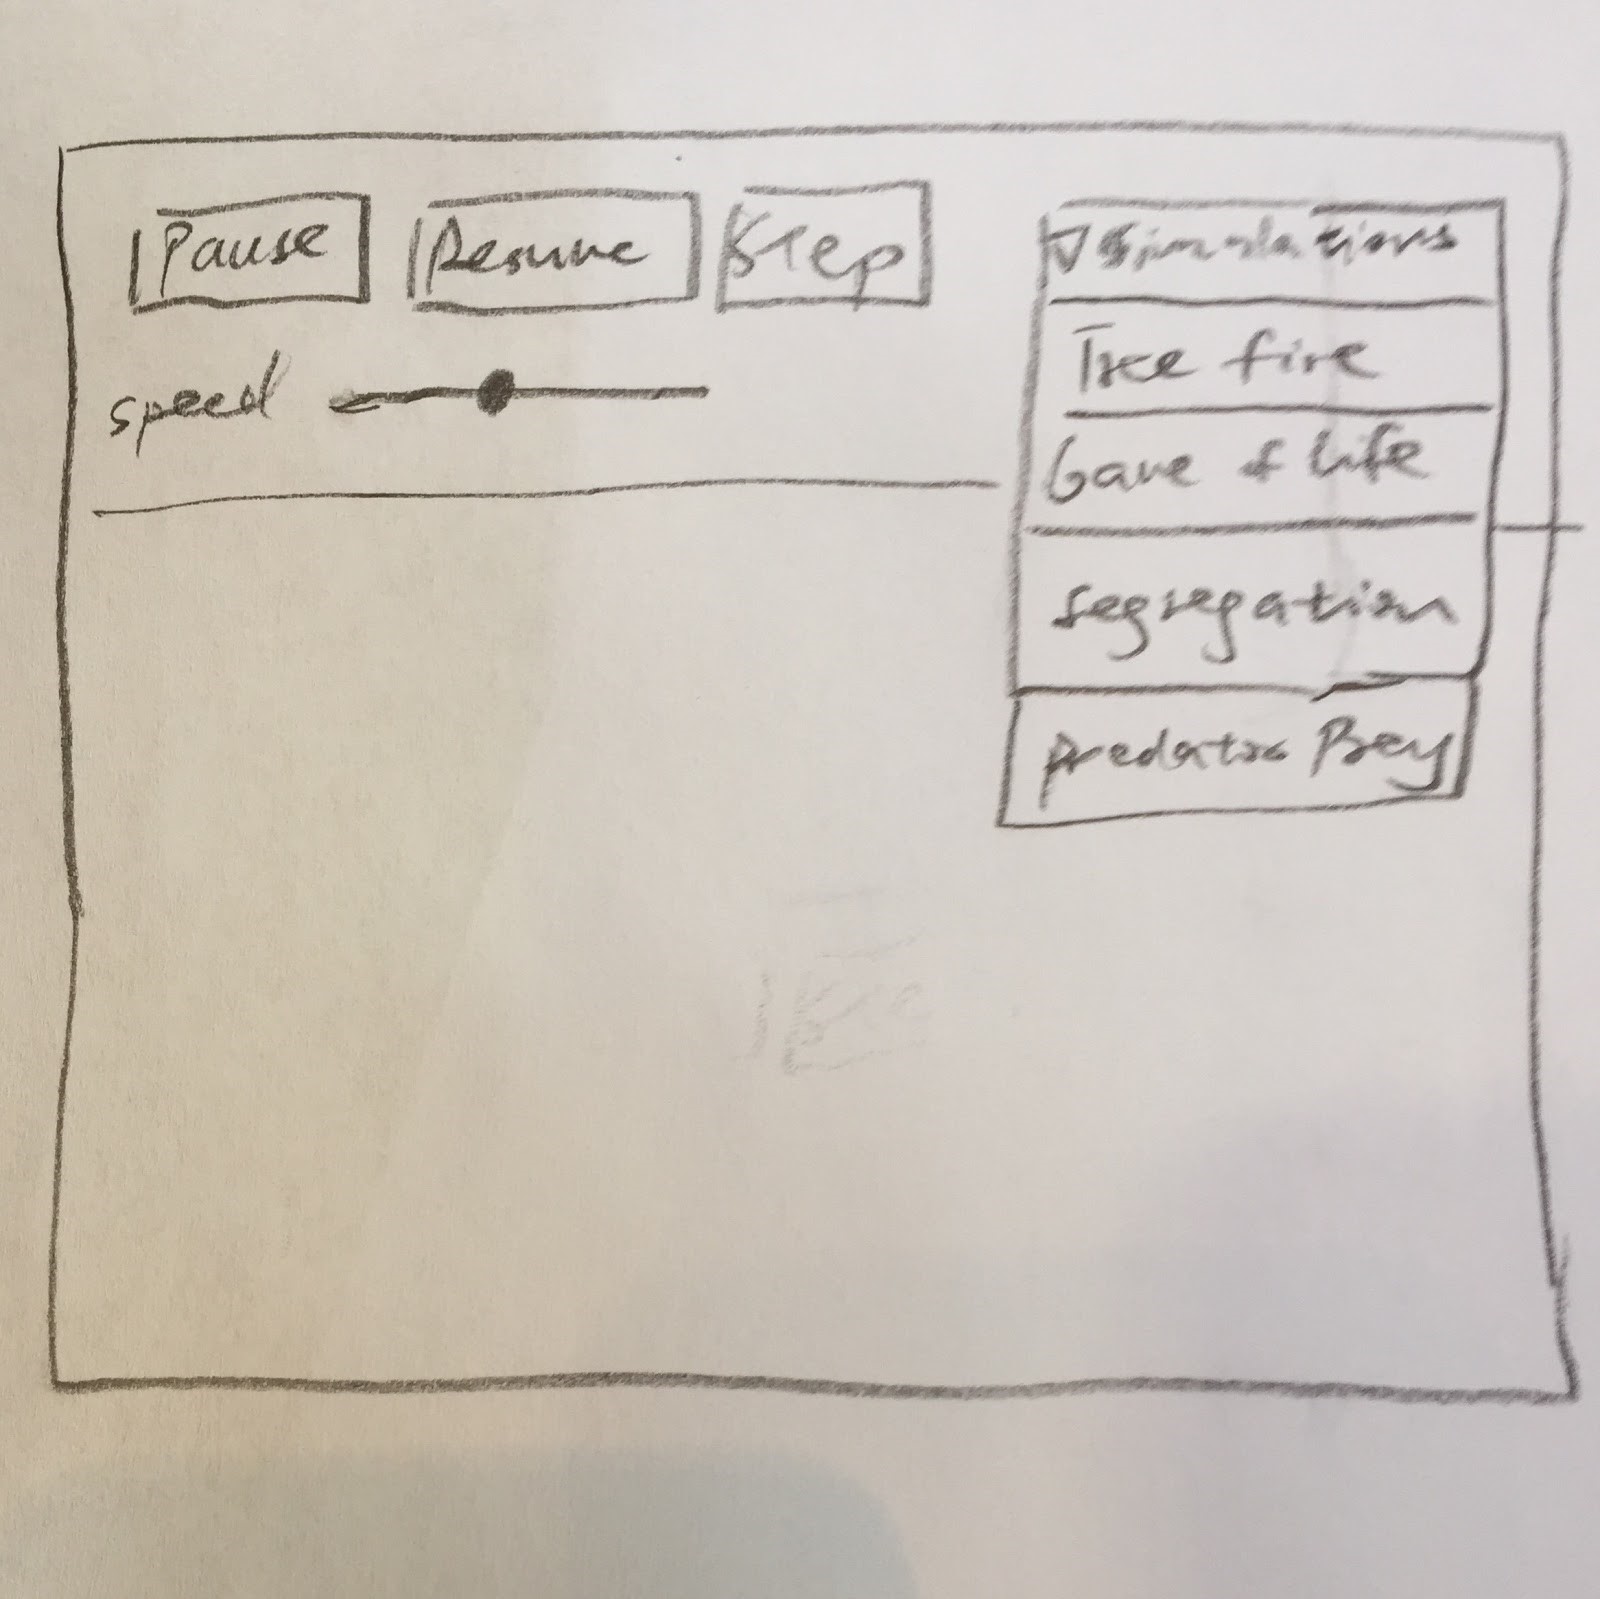 Pause Resume Step
speed
Simulations
Tree fire
Game of Life
Segregation
Predator Prey